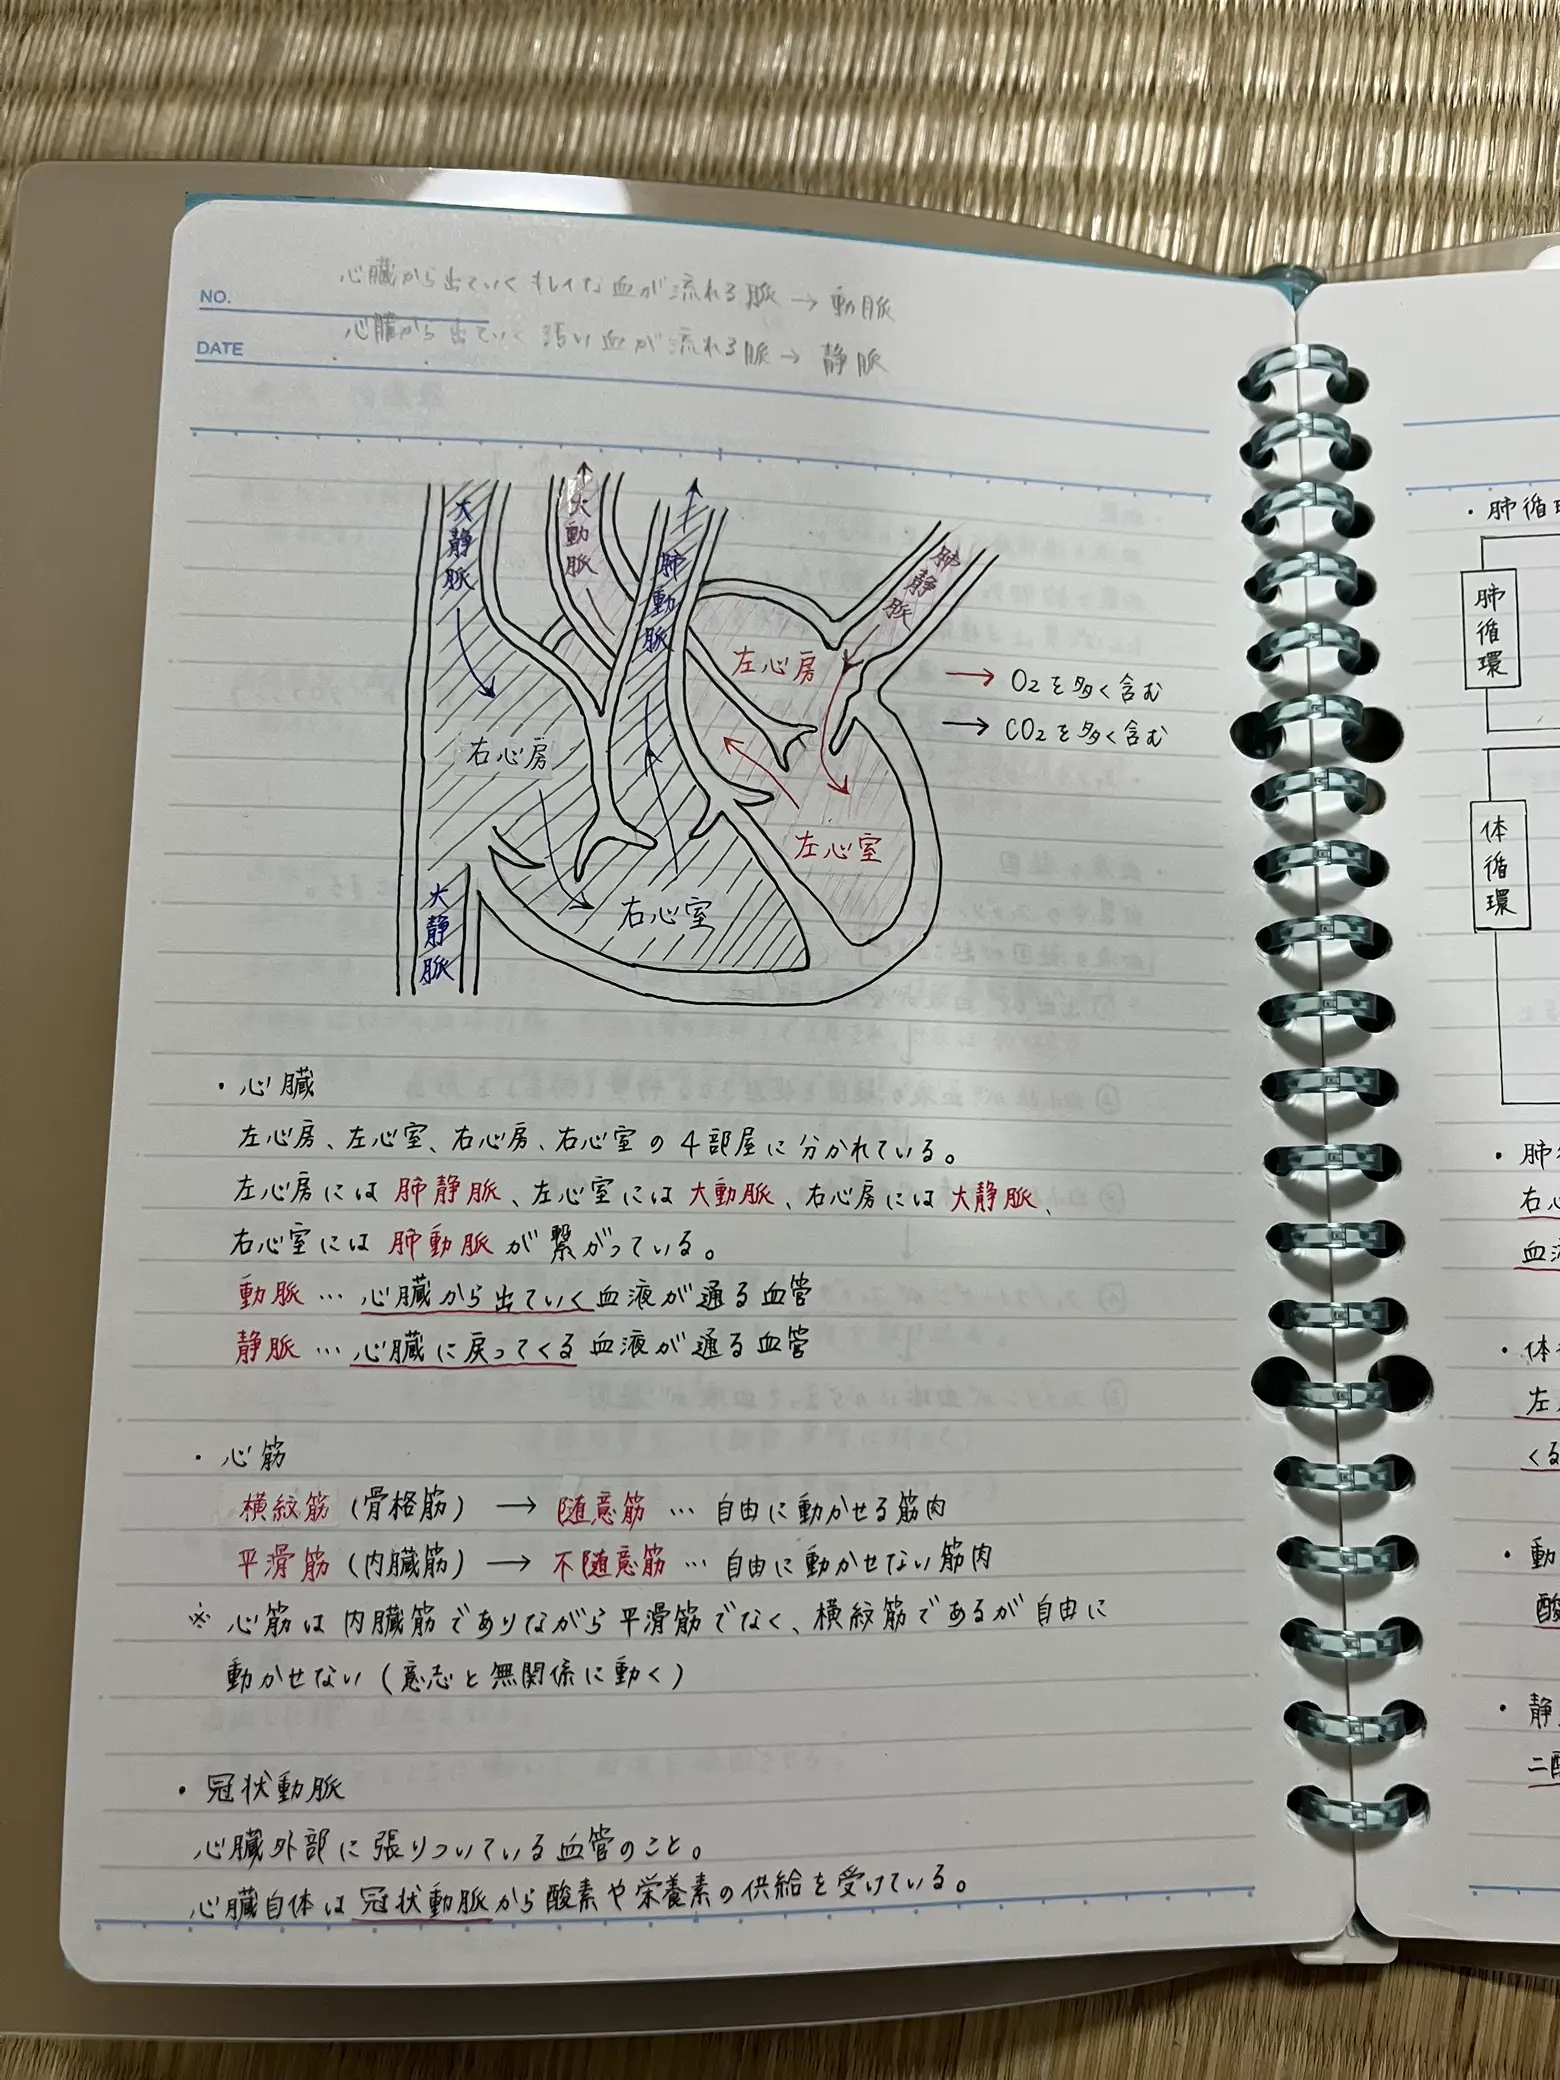 NO.
DATE
心臓から出ていくキレイな血が流れる脈→動脈
心臓から出ていく汚い血が流れる脈→静脈
大静脈
大動脈
肺動脈
肺静脈
左心房
→ O₂を多く含む
→ CO₂を多く含む
右心房
左心室
右心室
大静脈
・心臓
左心房、左心室、右心房、右心室の4部屋に分かれている。
左心房には肺静脈、左心室には大動脈、右心房には大静脈、
右心室には肺動脈が繋がっている。
動脈…心臓から出ていく血液が通る血管
静脈…心臓に戻ってくる血液が通る血管
・心筋
横紋筋(骨格筋)→随意筋…自由に動かせる筋肉
平滑筋(内臓筋)→不随意筋…自由に動かせない筋肉
※心筋は内臓筋でありながら平滑筋でなく、横紋筋であるが自由に
動かせない(意志と無関係に動く)
・冠状動脈
心臓外部に張りついている血管のこと。
心臓自体は冠状動脈から酸素や栄養素の供給を受けている。
・肺循
肺循環
体循環
・肺
右
血
・体
左
くる
・動
酸
・静
二